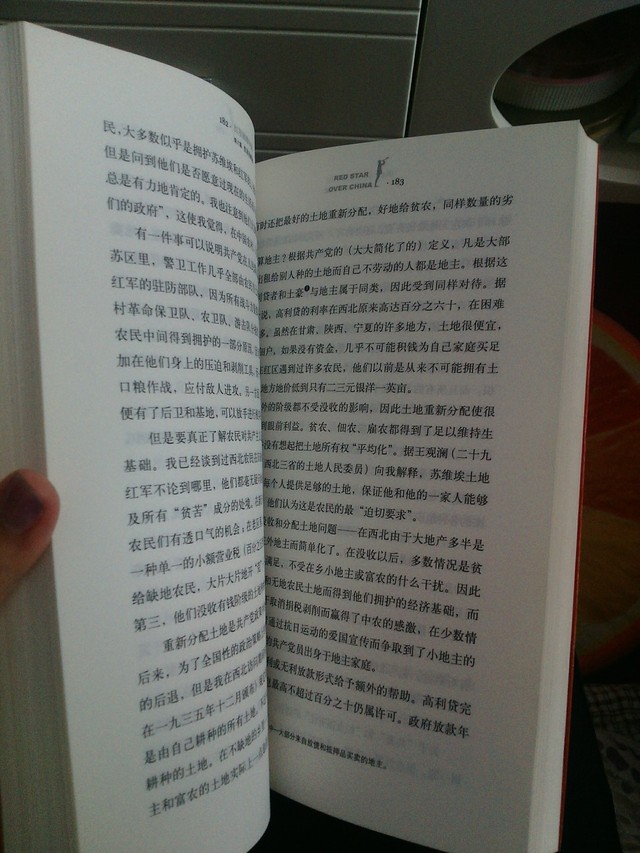 182
民，大多数似乎是拥护苏维埃和红
但是问到他们是否愿意过现在的
总是有力地肯定的。我也注意到
们的政府”，这使我觉得，在中国
有一件事可以说明共产党在
苏区里，警卫工作几乎全部由
红军的驻防部队，因为所有战斗
村革命保卫队、农卫队、游击队
农民中间得到拥护的一部分原因
加在他们身上的压迫和剥削工具
口粮作战，应付敌人进攻，另一
便有了后卫和基地，可以放手进行
但是要真正了解农民对共产
基础。我已经谈到过西北农民在
红军不论到哪里，他们都毫无疑
及所有“贫苦”成分的处境。在新
农民们有透口气的机会；在老
一种单一的小额营业税（百分之
给缺地农民，大片大片地开“荒”
第三，他们没收有钱阶级的土地
重新分配土地是共产党政策
后来，为了全国性的政治策略
的后退，但是我在西北访问
在一九三五年十二月颁布）规
是由自己耕种的所有土地，
耕种的土地。在不缺地的
主和富农的土地实际上
RED STAR
OVER CHINA
·183
时还把最好的土地重新分配，好地给贫农，同样数量的劣
算地主？根据共产党的（大大简化了的）定义，凡是大部
出租给别人种的土地而自己不劳动的人都是地主。根据这
贷者和土豪与地主属于同类，因此受到同样对待。据
说，高利贷的利率在西北原来高达百分之六十，在困难
多。虽然在甘肃、陕西、宁夏的许多地方，土地很便宜，
佃户，如果没有资金，几乎不可能积钱为自己家庭买足
红区遇到过许多农民，他们以前是从来不可能拥有土
地方地价低到只有二三元银洋一英亩。
外的阶级都不受没收的影响，因此土地重新分配使很
眼前利益。贫农、佃农、雇农都得到了足以维持生
没有想起把土地所有权“平均化”。据王观澜（二十九
西北三省的土地人民委员）向我解释，苏维埃土地
每个人提供足够的土地，保证他和他的一家人能够
他们认为这是农民的最“迫切要求”。
收和分配土地问题——在西北由于大地产多半是
外地主而简单化了。在没收以后，多数情况是贫
满足，不受在乡小地主或富农的什么干扰。因此
和无地农民土地而得到他们拥护的经济基础，而
取消捐税剥削而赢得了中农的感激，在少数情
通过抗日运动的爱国宣传而争取到了小地主的
的共产党员出身于地主家庭。
或无利放款形式给予额外的帮助。高利贷完
最高不超过百分之十仍属许可。政府放款年
一大部分来自股债和抵押品买卖的地主。